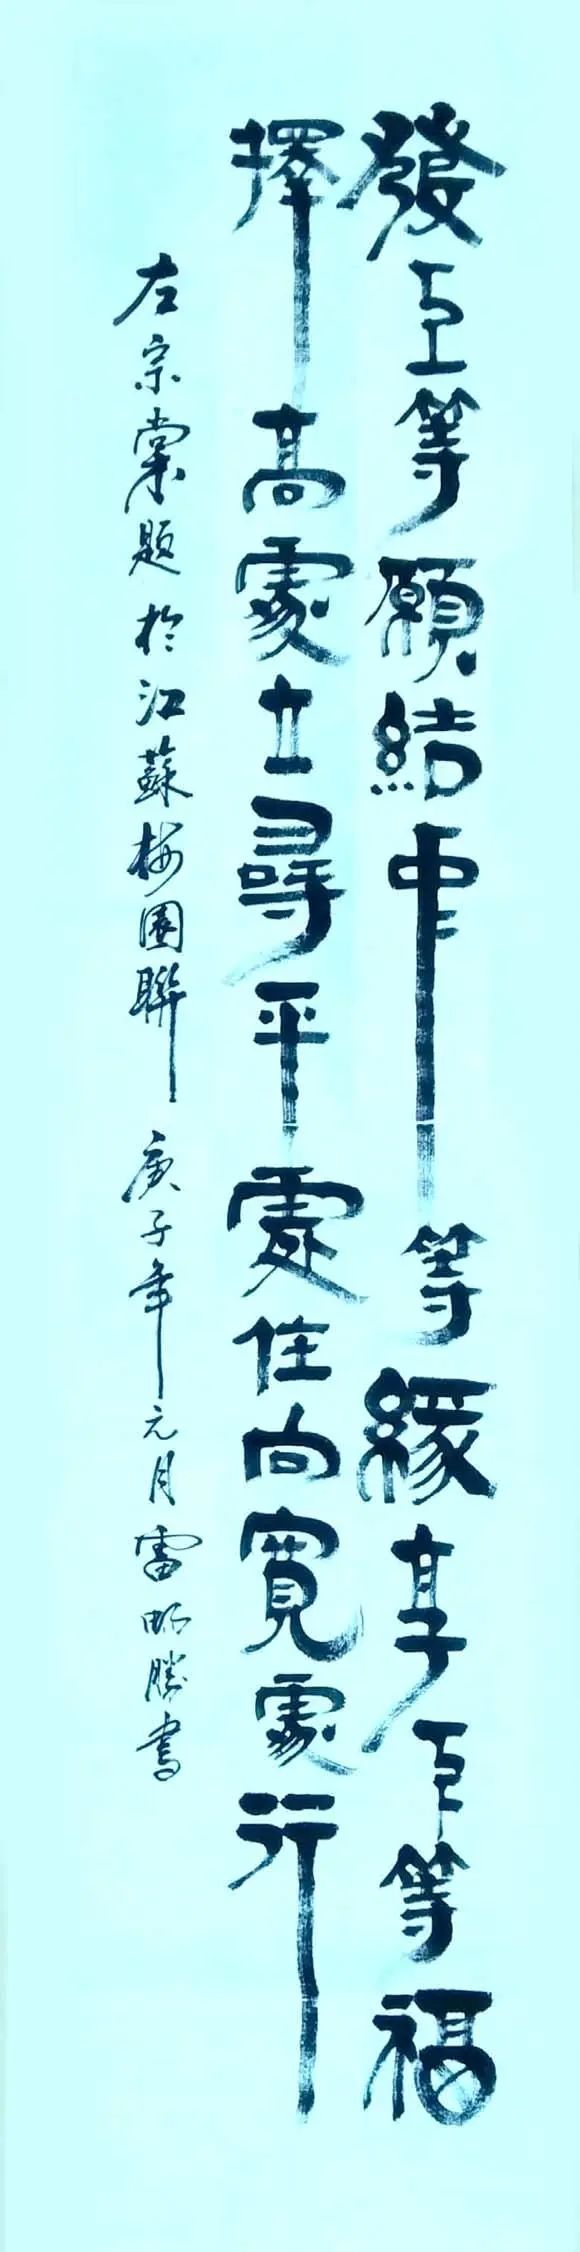 發上等願結中等緣享下等福
擇高處立尋平處住向寬處行
左宗棠題於江蘇梅園聯 庚子年元月雷勝書